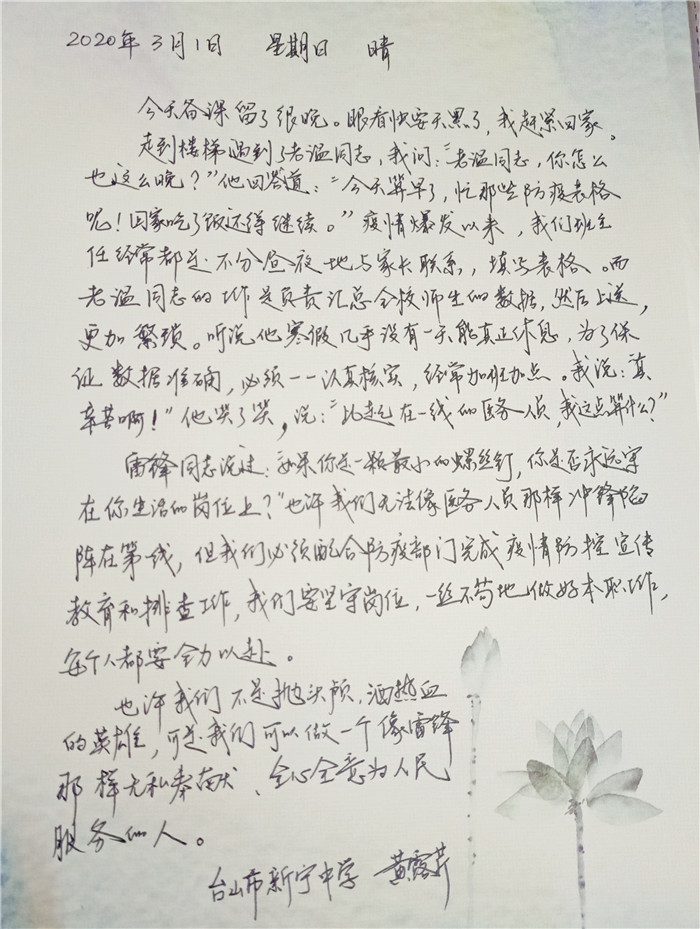 2020年3月1日 星期日 晴
今天备课留了很晚。眼看快要天黑了,我赶紧回家。
走到楼梯遇到了老温同志,我问:“老温同志,你怎么
也这么晚?”他回答道:“今天算早了,忙那些防疫表格
呢!回家吃了饭还得继续。”疫情爆发以来,我们班主
任经常都是不分昼夜地与家长联系,填写表格。而
老温同志的工作是负责汇总全校师生的数据,然后上送,
更加繁琐。听说他寒假几乎没有一天能真正休息,为了保
证数据准确,必须一一认真核实,经常加班加点。我说:真
辛苦啊!”他笑了笑,说:“比起在一线的医务人员,我这点算什么?”
雷锋同志说过:如果你是一颗最小的螺丝钉,你是否永远守
在你生活的岗位上?”也许我们无法像医务人员那样冲锋陷
阵在第一线,但我们必须配合防疫部门完成疫情防控宣传
教育和排查工作,我们要坚守岗位,一丝不苟地做好本职工作,
每个人都要全力以赴。
也许我们不是抛头颅,洒热血
的英雄,可是我们可以做一个像雷锋
那样无私奉献、全心全意为人民
服务的人。
台山市新宁中学 黄露芹